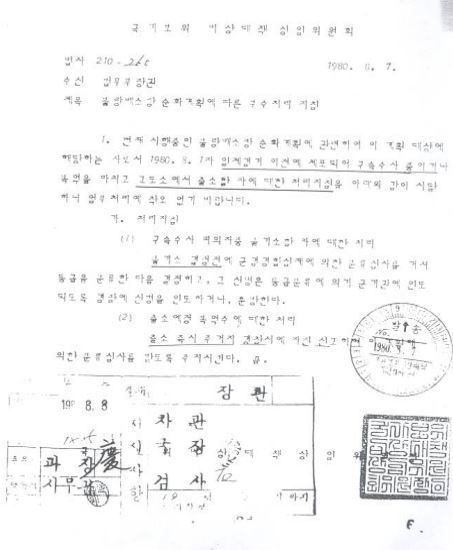 국가보위 비상대책 상임위원회
법사 210-265
1980. 8. 7.
수신 법무부장관
제목 불량배소탕 순화계획에 따른 부수처리 지침
1. 현재 시행중인 불량배소탕 순화계획에 관련하여 이 계획 대상에
해당하는 자로서 1980. 8. 1자 일제검거 이전에 체포되어 구속수사 중이거나
복역을 마치고 교도소에서 출소할 자에 대한 처리지침을 아래와 같이 시달
하니 업무처리에 착오 없기 바랍니다.
가. 처리지침
(1) 구속수사 피의자중 불기소할 자에 대한 처리
불기소 결정전에 군검경합심제에 의한 분류심사를 거쳐
등급을 분류한 다음 결정하고, 그 신병은 등급분류에 의거 군기관에 인도
되도록 경찰에 신병을 인도하거나, 훈방한다.
(2) 출소예정 복역수에 대한 처리
출소 즉시 주거지 경찰서에 자진 신고하여
의한 분류심사를 받도록 주지시킨다. 끝.
발송
1980. 8. 7
8. 8
장관
차관
국장
과장
검사